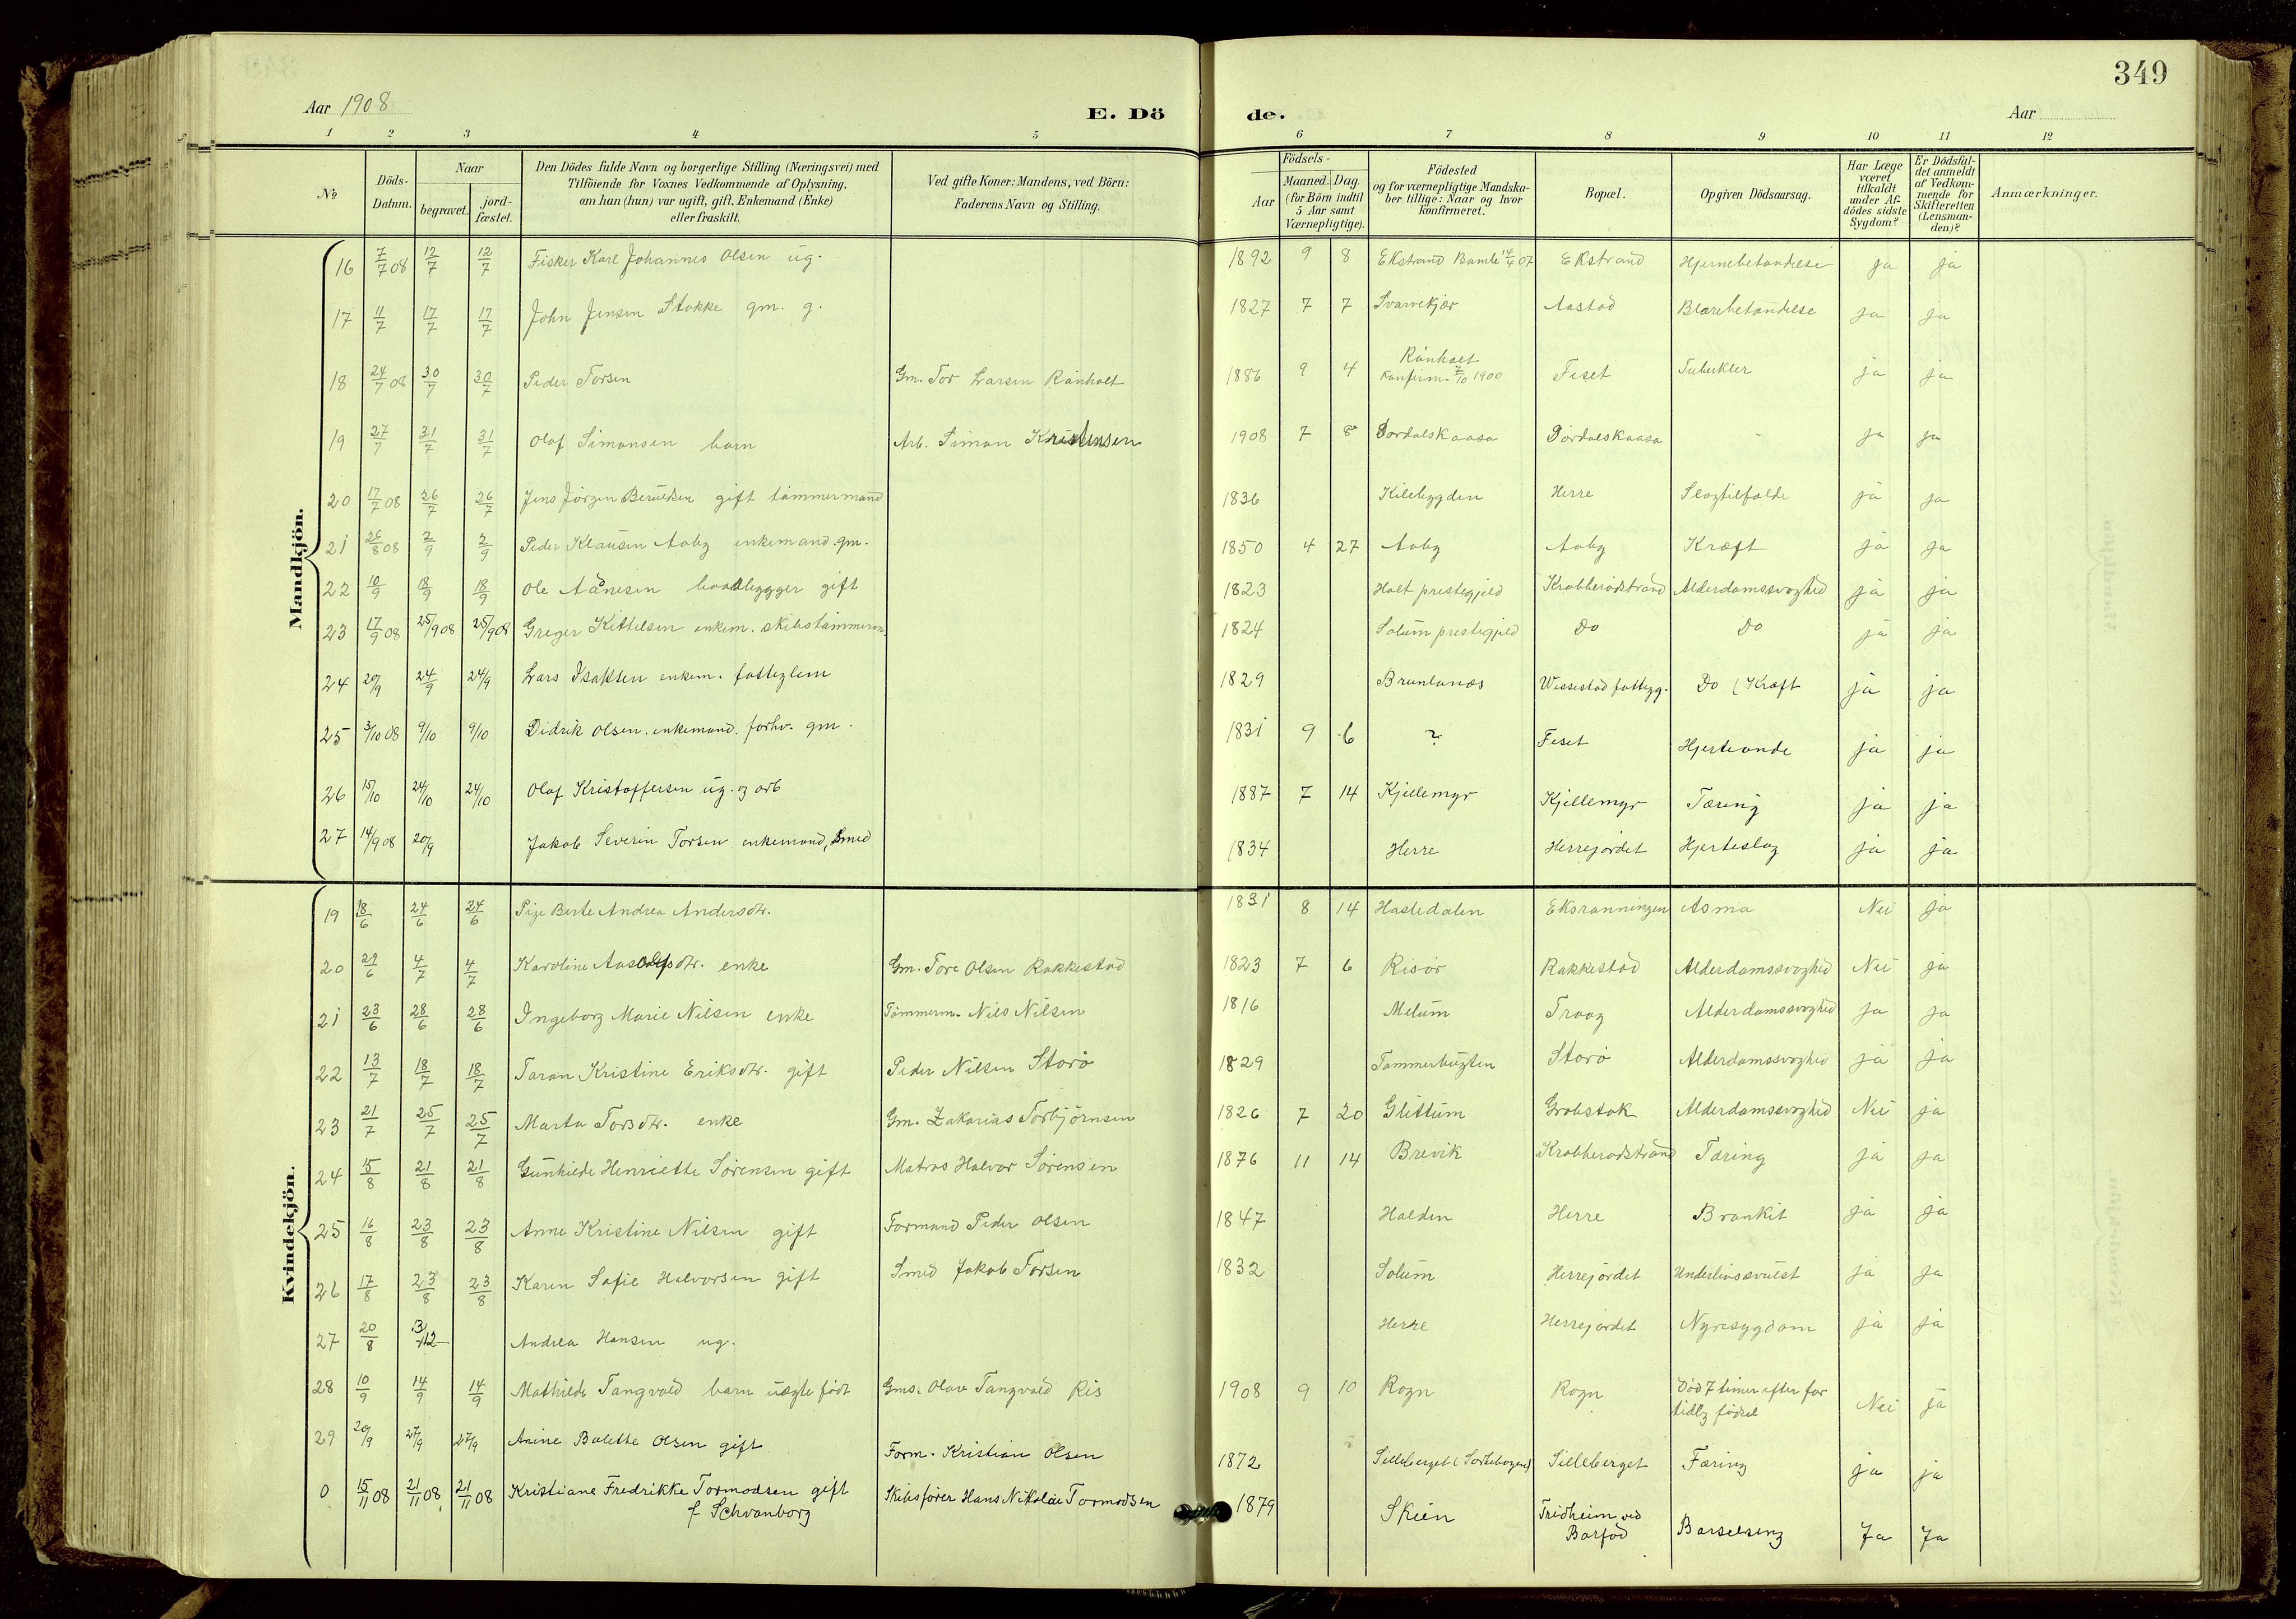 349
Aar 1908 E. Dö de. Aar
1 2 3 4 5 6 7 8 9 10 11 12
No
Döds-Datum.
Naar
begravet.
jord-fæstet.
Den Dödes fulde Navn og borgerlige Stilling (Næringsvei) med
Tilföiende for Voxnes Vedkommende af Oplysning,
om han (hun) var ugift, gift, Enkemand (Enke)
eller fraskilt.
Ved gifte Koner: Mandens, ved Börn:
Faderens Navn og Stilling.
Födsels-
Aar
Maaned. Dag.
(for Börn indtil
5 Aar samt
Værnepligtige).
Födested
og for værnepligtige Mandska-
ber tillige: Naar og hvor
konfirmeret.
Bopæl.
Opgiven Dödsaarsag.
Har Læge
været
tilkaldt
under Af-
dödes sidste
Sygdom?
Er Dödsfal-
det anmeldt
af Vedkom-
mende for
Skifteretten
(Lensman-
den)?
Anmærkninger.
Mandkjön.
16 7/7 08 12/7 12/7 Fisker Karl Johannes Olsen ug. 1892 9 8 Ekstrand Bamle 14/4 07 Ekstrand Hjernebetændelse ja ja
17 11/7 17/7 17/7 John Jensen Stokke gm. g. 1827 7 7 Svarvekjær Aastad Blærebetændelse ja ja
18 24/7 08 30/7 30/7 Peder Torsen Gm. Tor Larsen Rønholt 1886 9 4 Rønholt
Konfirm. 7/10 1900 Feset Tuberkler ja ja
19 27/7 31/7 31/7 Olaf Simonsen barn Arb. Simon Kristensen 1908 7 8 Dordalskaasa Dørdalskaasa - ja ja
20 17/7 08 26/7 26/7 Jens Jörgen Beruldsen gift tömmermand 1836 Kilebygden Herre Slagtilfælde ja ja
21 26/8 08 2/9 2/9 Peder Klausen Aaby enkemand. gm. 1850 4 27 Aaby Aaby Kræft ja ja
22 10/9 18/9 18/9 Ole Aanesen baadbygger gift 1823 Holt prestegjeld Krabberødstrand Alderdomssvaghed ja ja
23 17/9 08 25/9 08 25/9 08 Greger Kittelsen enkem. skibstømmerm. 1824 Solum prestegjeld Do Do ja ja
24 20/9 24/9 24/9 Lars Isaksen enkem. fattiglem 1829 Brunlanæs Wissestad fattigg. Do (Kræft ja ja
25 3/10 08 9/10 9/10 Didrik Olsen. enkemand. forhv. gm. 1831 9 6 ? Feset Hjerteonde ja ja
26 15/10 24/10 24/10 Olaf Kristoffersen ug. og arb 1887 7 14 Kjellemyr Kjellemyr Tæring ja ja
27 14/9 08 20/9 Jakob Severin Torsen enkemand, Smed 1834 Herre Herrejordet Hjerteslag ja ja
Kvindekjön.
19 18/6 24/6 24/6 Pige Berte Andrea Andersdtr. 1831 8 14 Hasledalen Eksranningen Asma Nei ja
20 29/6 4/7 4/7 Karoline enke Gm. Tore Olsen Rakkestad 1823 7 6 Risör Rakkestad Alderdomssvaghed Nei ja
21 23/6 28/6 28/6 Ingeborg Marie Nilsen enke Tömmerm. Nils Nilsen 1816 Melum Traag Alderdomssvaghed ja ja
22 13/7 18/7 18/7 Taran Kristine Eriksdtr. gift Peder Nilsen Storø 1829 Tømmerbugten Storø Alderdomssvaghed ja ja
23 21/7 25/7 25/7 Marta Torsdtr. enke Gm. Zakarias Torbjörnsen 1826 7 20 Glittum Grobstok Alderdomssvaghed Nei ja
24 15/8 21/8 21/8 Gunhilde Henriette Sørensen gift Matros Halvor Sørensen 1876 11 14 Brevik Krabberødstrand Tæring ja ja
25 16/8 23/8 23/8 Anne Kristine Nilsen gift Formand Peder Olsen 1847 Halden Herre Bronkit ja ja
26 17/8 23/8 23/8 Karen Sofie Halvorsen gift Smed Jakob Torsen 1832 Solum Herrejordet Underlivssvulst ja ja
27 20/8 3/12 Andrea Hansen ug. Herre Herrejordet Nyresygdom ja ja
28 10/9 14/9 14/9 Mathilde Tangvald barn uægte født Gms. Olav Tangvald Ris 1908 9 10 Rogn Rogn Død 7 timer efter for
tidlig fødsel Nei ja
29 20/9 27/9 27/9 Anine Bolette Olsen gift Form. Kristian Olsen 1872 Silleberget Silleberget Tæring ja ja
0 15/11 08 21/11 08 21/11 08 Kristiane Fredrikke Tormodsen gift
f Schvanborg Skibsfører Hans Nikolai Tormodsen 1879 Skien Fridheim ved
Barfod Barselseng Ja Ja